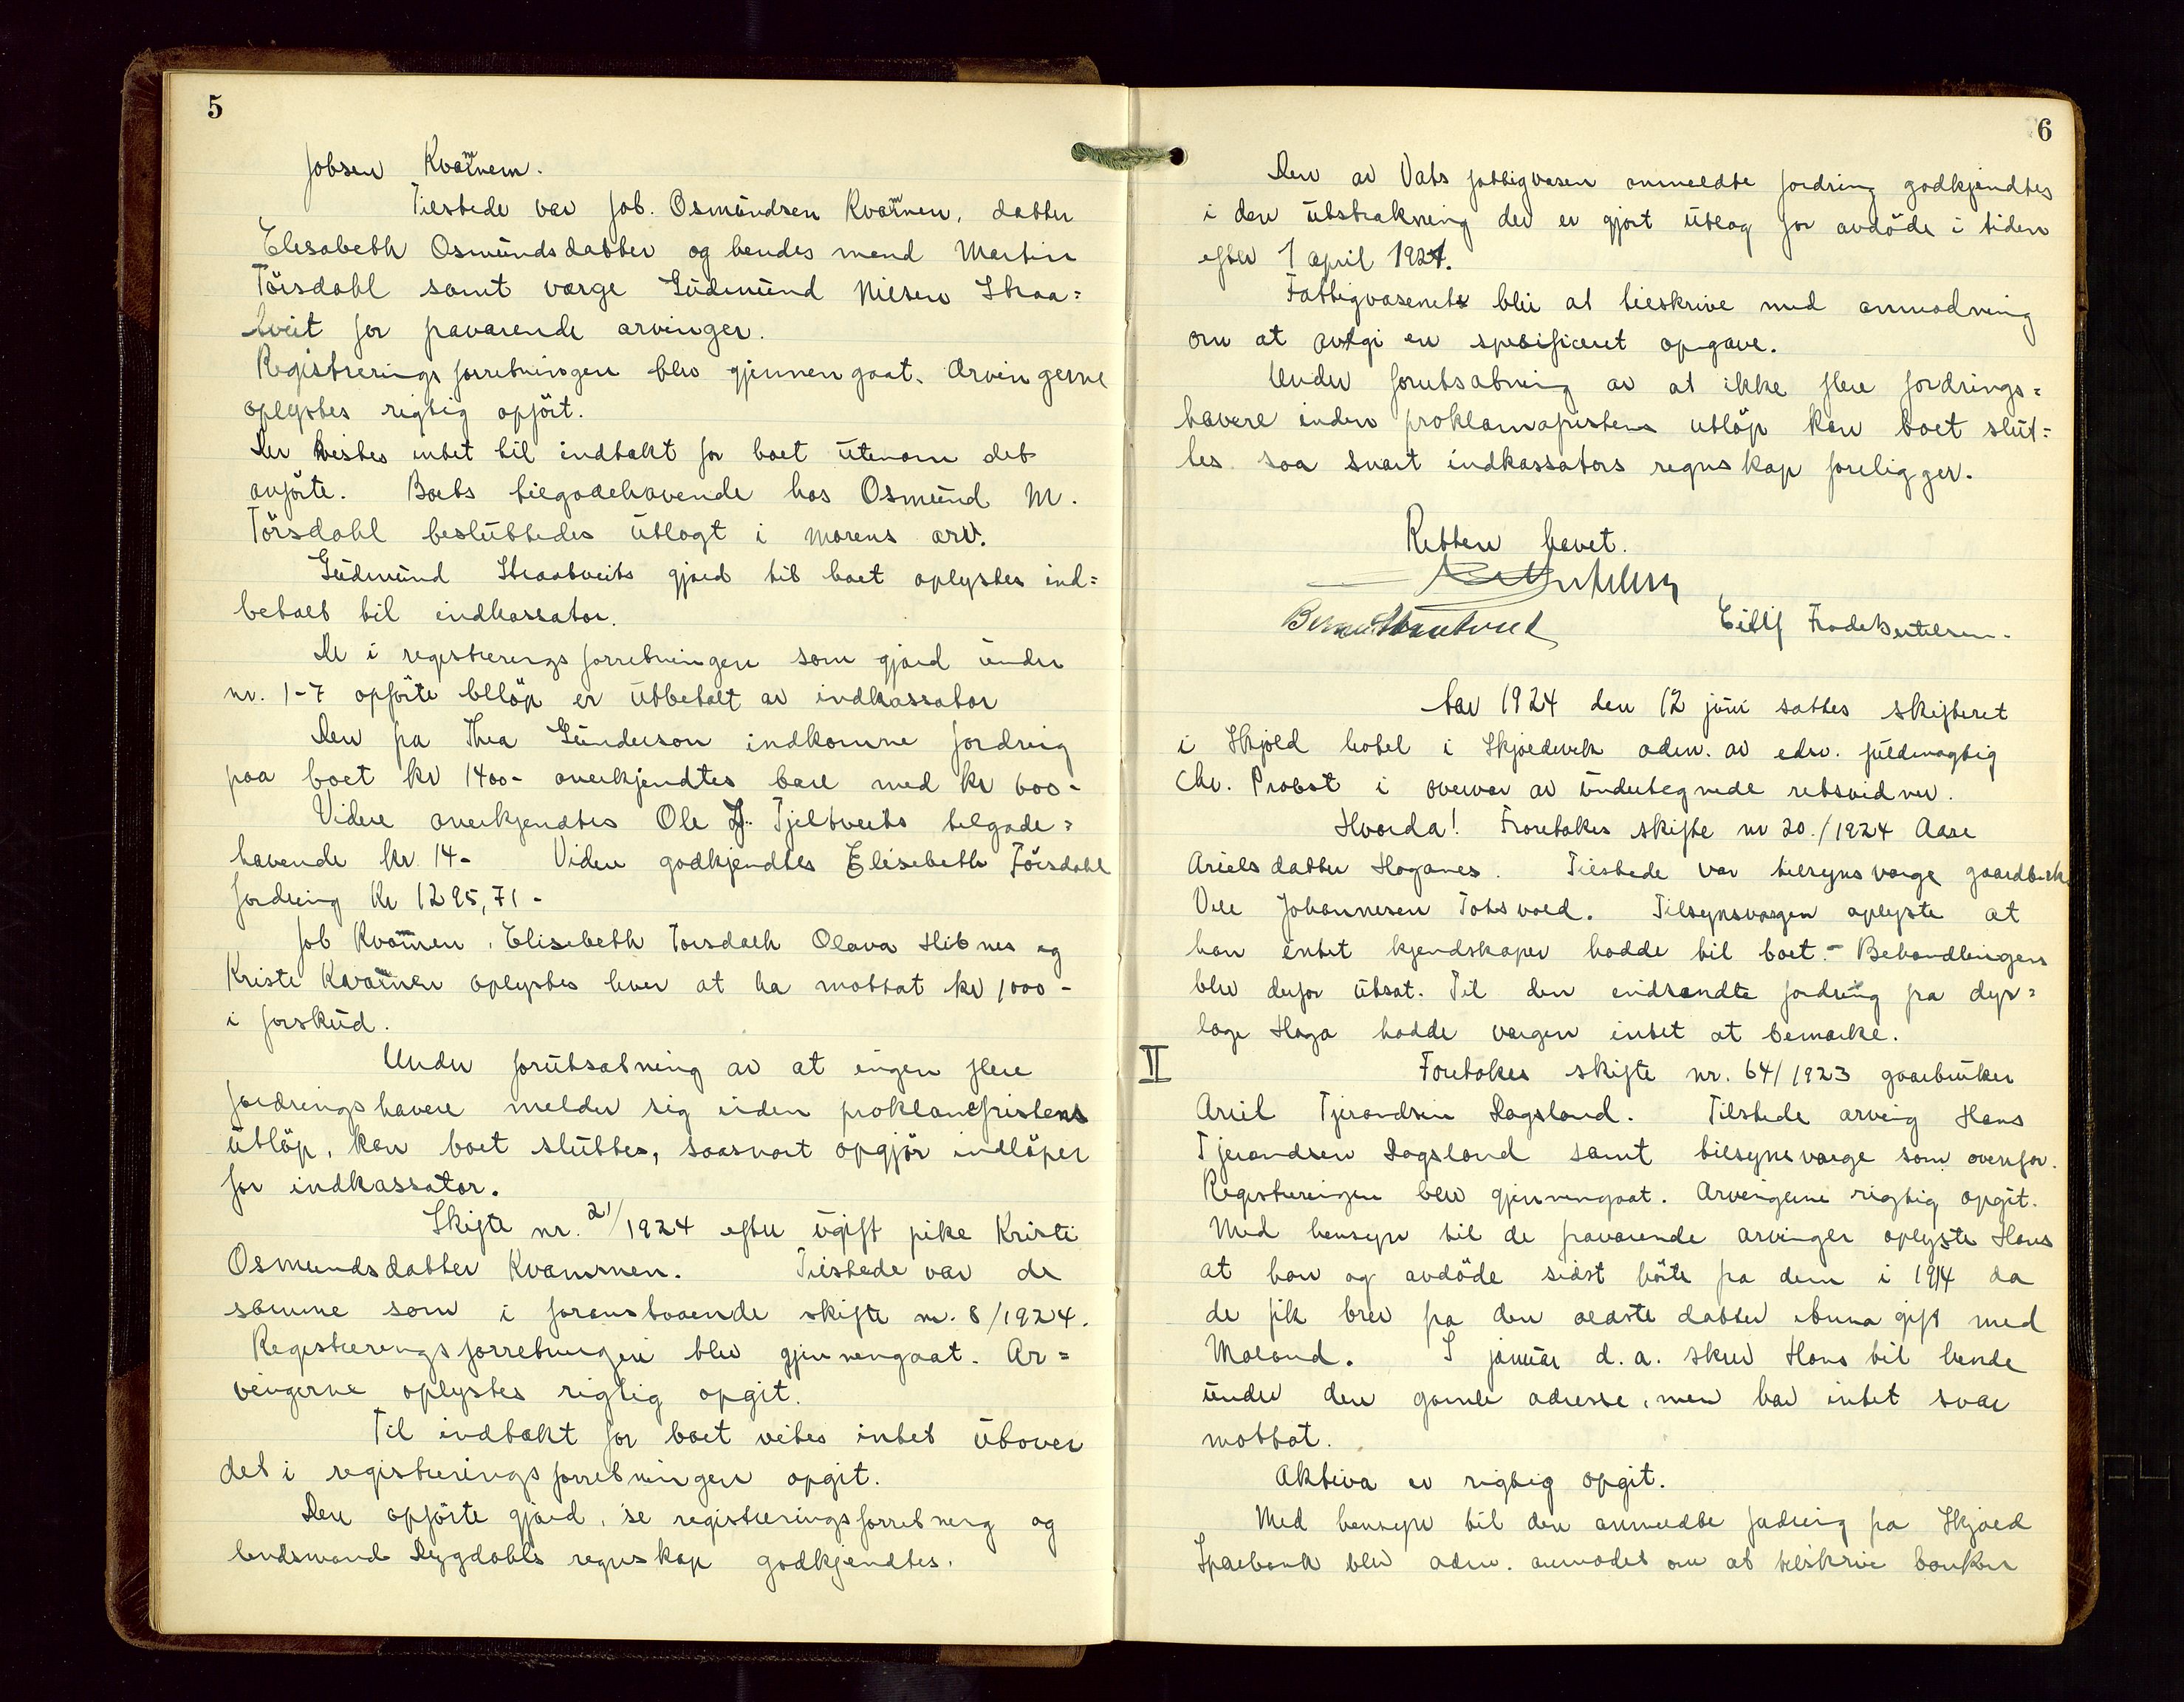 5
Jobsen Kvammem.
Tilstede var Job. Osmundsen Kvammen, datter
Elisabeth Osmundsdatter og hendes mand Martin
Törsdahl samt værge Gudmund Nilsen Straa=
tveit for fraværende arvinger.
Registreringsforretningen blev gjennengaat. Arvingerne
oplystes rigtig opfört.
Der vistes intet til indtækt for boet utenom det
anförte. Boets tilgodehavende hos Osmund M.
Törsdahl besluttedes utlagt i morens arv.
Gudmund Straatveits gjæld til boet oplystes ind=
betalt til indkassator.
De i registreringsforretningen som gjæld under
nr. 1-7 opförte bellöp er utbetalt av indkassator
Den fra Thea Gunderson indkomne fordring
paa boet kr 1400- anerkjendtes bare med kr 600-
Videre anerkjendtes Ole J. Tjeltveits tilgode=
havende kr. 14- Viden godkjendtes Elisebeth Törsdahl
fordring kr 1295,71-
Job Kvammen, Elisebeth Torsdalh Olava Slibnes og
Kristi Kvammen oplystes hver at ha mottat kr 1000-
i forskud.
Under forutsætning av at ingen flere
fordringshavere melder sig inden proklamafristens
utlöp, kan boet sluttes, saasnart opgjör indlöper
for indkassator.
Skifte nr. 21/1924 efter ugift pike Kristi
Osmundsdatter Kvammen. Tilstede var de
samme som i foranstaaende skifte nr. 8/1924.
Registreringsforretningen blev gjennengaat. Ar=
vingerne oplystes rigtig opgit.
Til indtækt for boet vites intet utover
det i registreringsforretningen opgit.
Den opförte gjæld, se registreringsforretning og
lendsmand Dygdahls regnskap godkjendtes.
6
Den av Vats fattigvæsen anmeldte fordring godkjendtes
i den utstrækning der er gjort utlæg for avdöde i tiden
efter 1 april 1921.
Fattigvæsenet blir at tilskrive med anmodning
om at avgi en spesificeret opgave.
Under forutsætning av at ikke flere fordrings=
havere inden proklamafristens utlöp kan boet slut=
tes saa snart indkassators regnskap foreligger.
Retten hævet.
Eilif Frode Bertelsen.
Aar 1924 den 12 juni sattes skifteret
i Skjold hotel i Skjoldevik adm. av edsv. fuldmægtig
Chr. Probst i overvær av undertegnede retsvidner.
Hvorda! Foretokes skifte nr 20./1924 Aase
Arielsdatter Haganes. Tilstede var tilsynsværge gaardbruk
Ole Johannesen Totsvold. Tilsynsværgen oplyste at
han intet kjendskaper hadde til boet.- Behandlingen
blev derfor utsat. Til den indsendte fordring fra dyr=
læge Haga hadde værgen intet at bemærke.
II
Foretokes skifte nr. 64/1923 gaarbruker
Ariel Tjerandsen Dagsland. Tilstede arving Hans
Tjerandsen Dagsland samt tilsynsværge som ovenfor.
Registreringen blev gjennengaat. Arvingerne rigtig opgit.
Med hensyn til de fraværende arvinger oplyste Hans
at han og avdöde sidst hörte fra dem i 1914 da
de fik brev fra den ældste datter Anna gift med
Moland. I januar d.a. skrev Hans til hende
under den gamle adresse, men har intet svar
mottat.
Aktiva er rigtig opgit.
Med hensyn til den anmeldte fordring fra Skjold
Sparebank blev adm. anmodet om at tilskrive banken